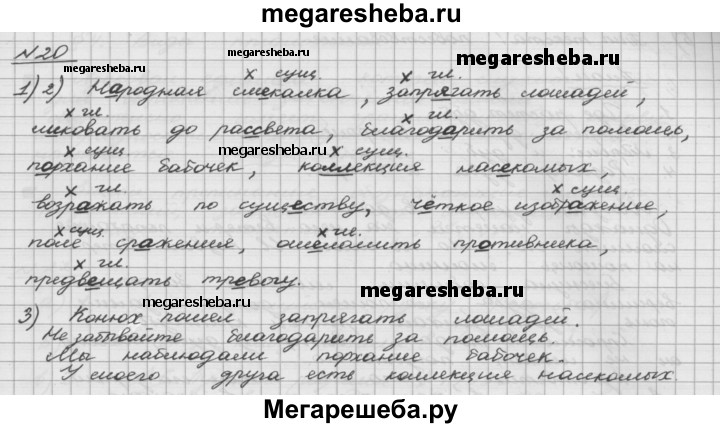 megaresheba.ru
№20
megaresheba.ru
megaresheba.ru
megaresheba.ru
х сущ. х гл.
1) 2) Народная смекалка, запрягать лошадей,
х гл. х гл.
ликовать до рассвета, благодарить за помощь,
megaresheba.ru
х сущ х сущ.
порхание бабочек, коллекция насекомых,
х гл. х сущ
возражать по существу, чёткое изображение,
х сущ х гл.
поле сражения, ошеломить противника,
х гл.
предвещать тревогу.
megaresheba.ru
megaresheba.ru
3) Конюх пошел запрягать лошадей.
Не забывайте благодарить за помощь.
Мы наблюдали порхание бабочек.
У моего друга есть коллекция насекомых.
Мегарешеба.ру